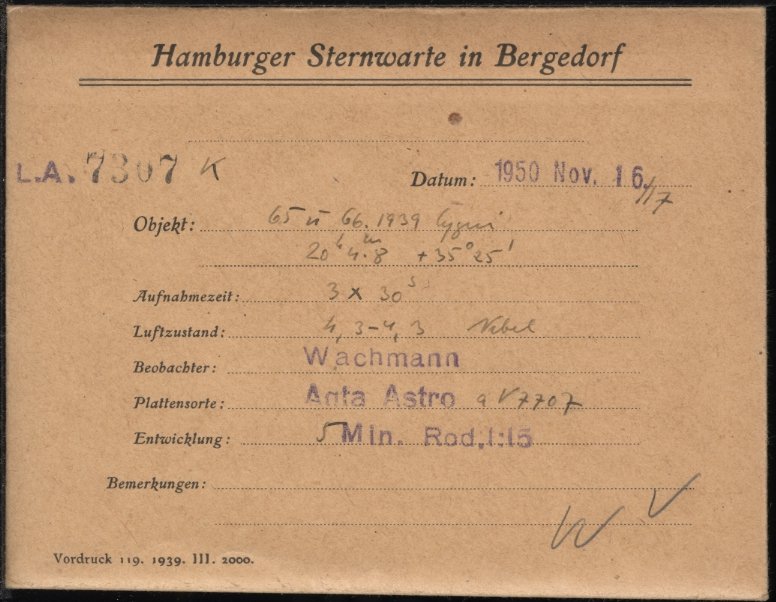 Hamburger Sternwarte in Bergedorf
L.A. 7307 K
Datum: 1950 Nov. 16./17
Objekt: 65 u 66. 1939 Cygni
20ʰ 4ᵐ.8 +35° 25'
Aufnahmezeit: 3 x 30ˢ
Luftzustand: 4,3-4,3 Nebel
Beobachter: Wachmann
Plattensorte: Agfa Astro a V7707
Entwicklung: 5 Min. Rod.1:15
Bemerkungen:
W V
Vordruck 119. 1939. III. 2000.